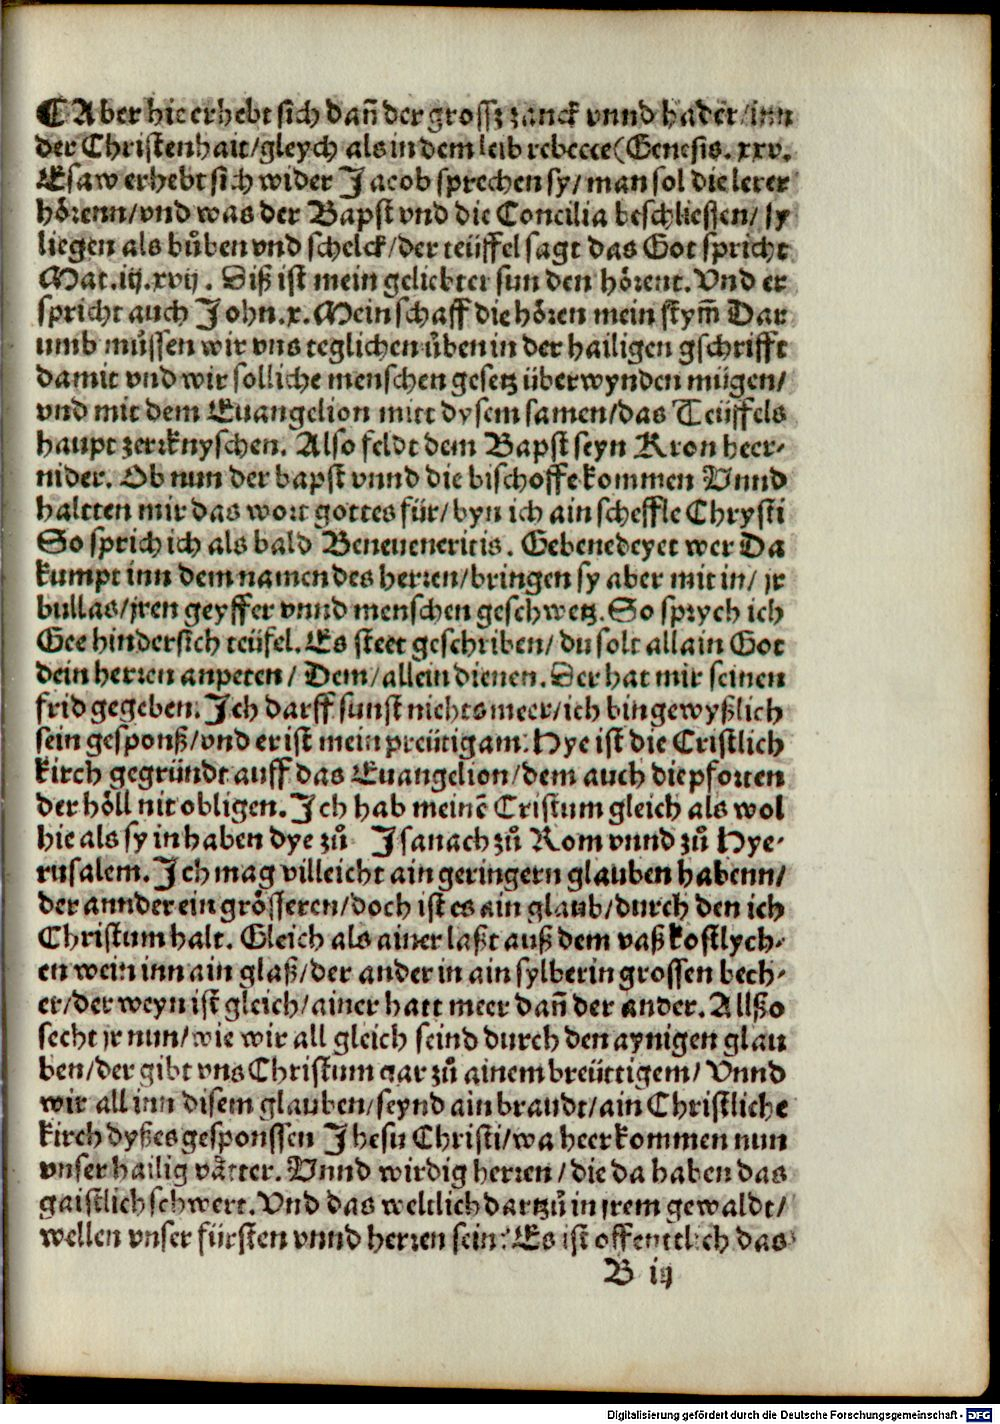 ¶Aber hie erhebt sich dañ der grossz zanck vnnd hader/inn
der Christenhait/gleych als in dem leib rebecce(Genesis.xxv.
Esaw erhebt sich wider Jacob sprechen sy/man sol die lerer
hörenn/vnd was der Bapst vnd die Concilia beschliessen/sy
liegen als bůben vnd schelck/der teüffel sagt das Got spricht
Mat.iij.xvij. Diß ist mein geliebter sun den hörent. Vnd er
spricht auch John.x. Mein schaff die hören mein stym̄ Dar
umb müssen wir vns teglichen üben in der hailigen gschrifft
damit vnd wir solliche menschen gesetz überwynden mügen/
vnd mit dem Euangelion mitt dysem samen/das Teüffels
haupt zerrknyschen. Also feldt dem Bapst seyn Kron heer-
nider. Ob nun der bapst vnnd die bischoffe kommen Vnnd
haltten mir das wort gottes für/byn ich ain scheffle Chrysti
So sprich ich als bald Beneueneritis. Gebenedeyet wer Da
kumpt inn dem namen des herren/bringen sy aber mit in/jr
bullas/jren geyffer vnnd menschen geschwetz. So sprych ich
Gee hindersich teüfel. Es steet geschriben/du solt allain Got
dein herren anpeten/Dem/allein dienen. Der hat mir seinen
frid gegeben. Ich darff sunst nichts meer/ich bin gewyßlich
sein gesponß/vnd er ist mein preütigam. Hye ist die Cristlich
kirch gegründt auff das Euangelion/dem auch die pforten
der höll nit obligen. Ich hab meinē Cristum gleich als wol
hie als sy in haben dye zů Jsanach zů Rom vnnd zů Hye-
rusalem. Ich mag villeicht ain geringern glauben habenn/
der annder ein grösseren/doch ist es ain glaub/durch den ich
Christum halt. Gleich als ainer laßt auß dem vaß kostlych-
en wein inn ain glaß/der ander in ain sylberin grossen bech-
er/der weyn ist gleich/ainer hatt meer dañ der ander. Allßo
secht jr nun/wie wir all gleich seind durch den aynigen glau
ben/der gibt vns Christum gar zů ainem breüttigem/Vnnd
wir all inn disem glauben/seynd ain braudt/ain Christliche
kirch dyßes gesponssen Jhesu Christi/wa heer kommen nun
vnser hailig vätter. Vnnd wirdig herren/die da haben das
gaistlich schwert. Vnd das weltlich dartzů in jrem gewaldt/
wellen vnser fürsten vnnd herren sein? Es ist offenttlich das
B iij
Digitalisierung gefördert durch die Deutsche Forschungsgemeinschaft - DFG